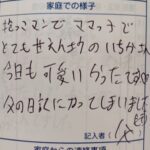 家庭での様子
抱っこマンで ママっ子で
とても甘えんぼうのいちかさん
今日も可愛いかったてす
父の日記になってしまいました
記入者( 父 )
家庭からの連絡事項